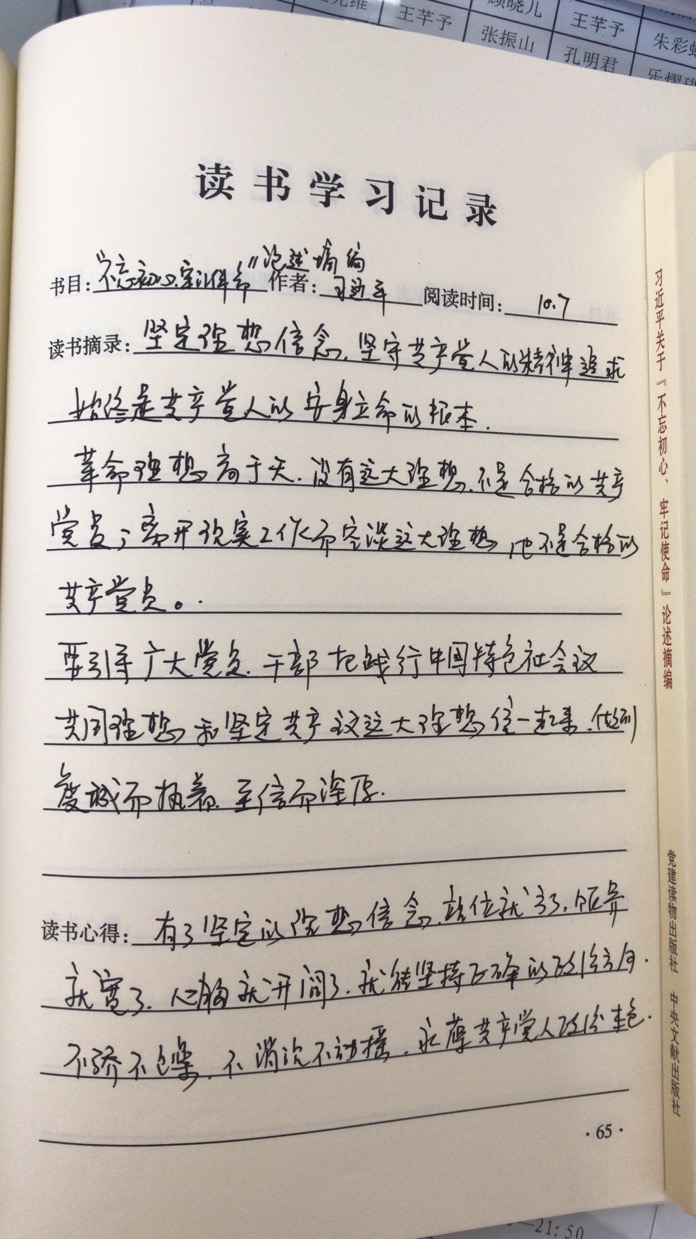 王芊予
顾晓儿
王芊予
张振山
孔明君
朱彩
读书学习记录
书目：“不忘初心、牢记使命”论述摘编 作者：习近平 阅读时间：10.7
读书摘录：坚定理想信念，坚守共产党人的精神追求
始终是共产党人的安身立命的根本．
革命理想高于天．没有远大理想，不是合格的共产
党员；离开现实工作而空谈远大理想，也不是合格的
共产党员。．
要引导广大党员、干部把践行中国特色社会议
共同理想和坚定共产议远大理想统一起来，做到
虔诚而执着、至信而深厚．
读书心得：有了坚定的理想信念，站位就高了，眼界
就宽了，心胸就开阔了，就能坚持正确的政治方向．
不骄不躁，不消沉不动摇，永葆共产党人政治本色．
·65·
习近平关于『不忘初心、牢记使命』论述摘编
党建读物出版社 中央文献出版社
21:50